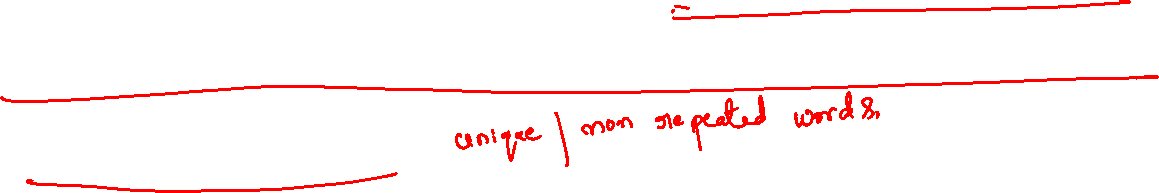 unique / non repeated words.